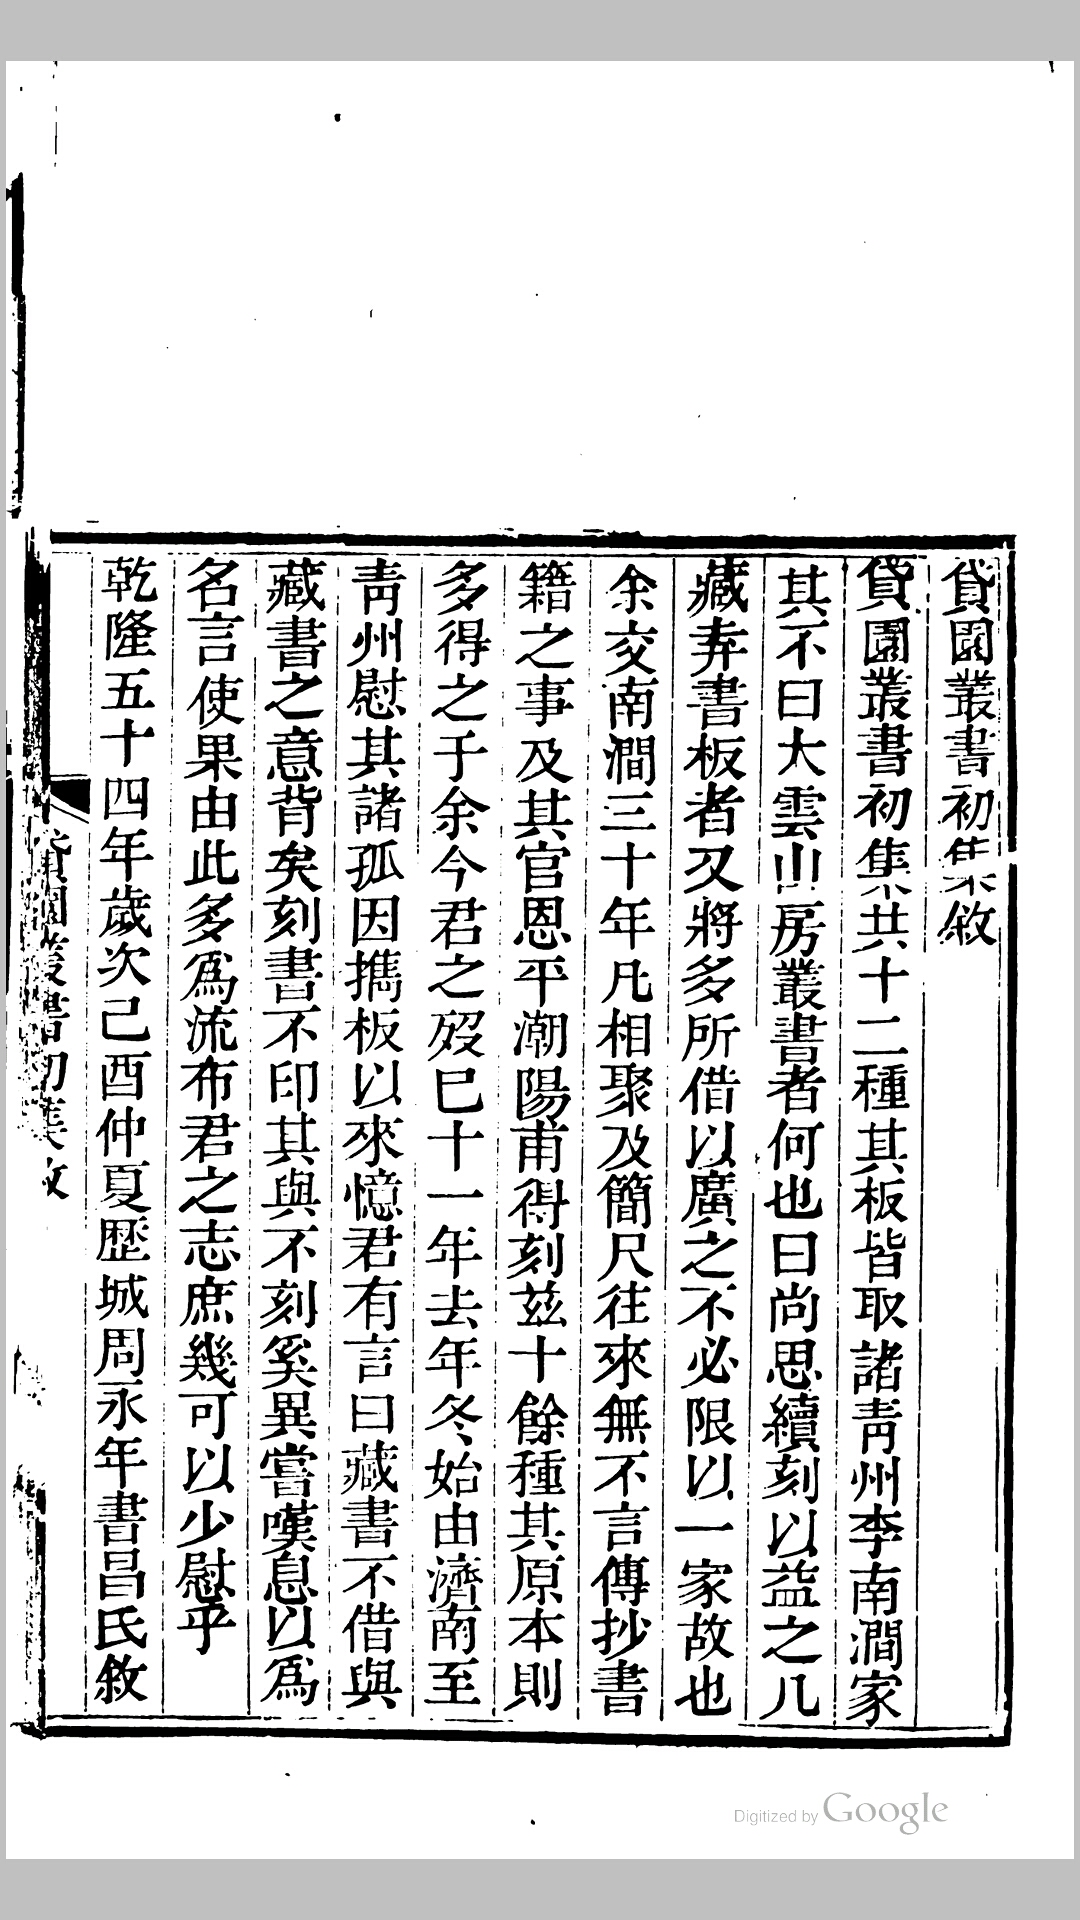 貸園叢書初集敘
貸園叢書初集共十二種其板皆取諸青州李南澗家
其不曰大雲山房叢書者何也曰尚思續刻以益之凡
藏弆書板者又將多所借以廣之不必限以一家故也
余交南澗三十年凡相聚及簡尺往來無不言傳抄書
籍之事及其官恩平潮陽甫得刻茲十餘種其原本則
多得之于余今君之歿已十一年去年冬始由濟南至
青州慰其諸孤因攜板以來憶君有言曰藏書不借與
藏書之意背矣刻書不印其與不刻奚異當嘆息以為
名言使果由此多為流布君之志庶幾可以少慰乎
乾隆五十四年歲次己酉仲夏歷城周永年書昌氏敘
貸園叢書初集敘
Digitized by Google